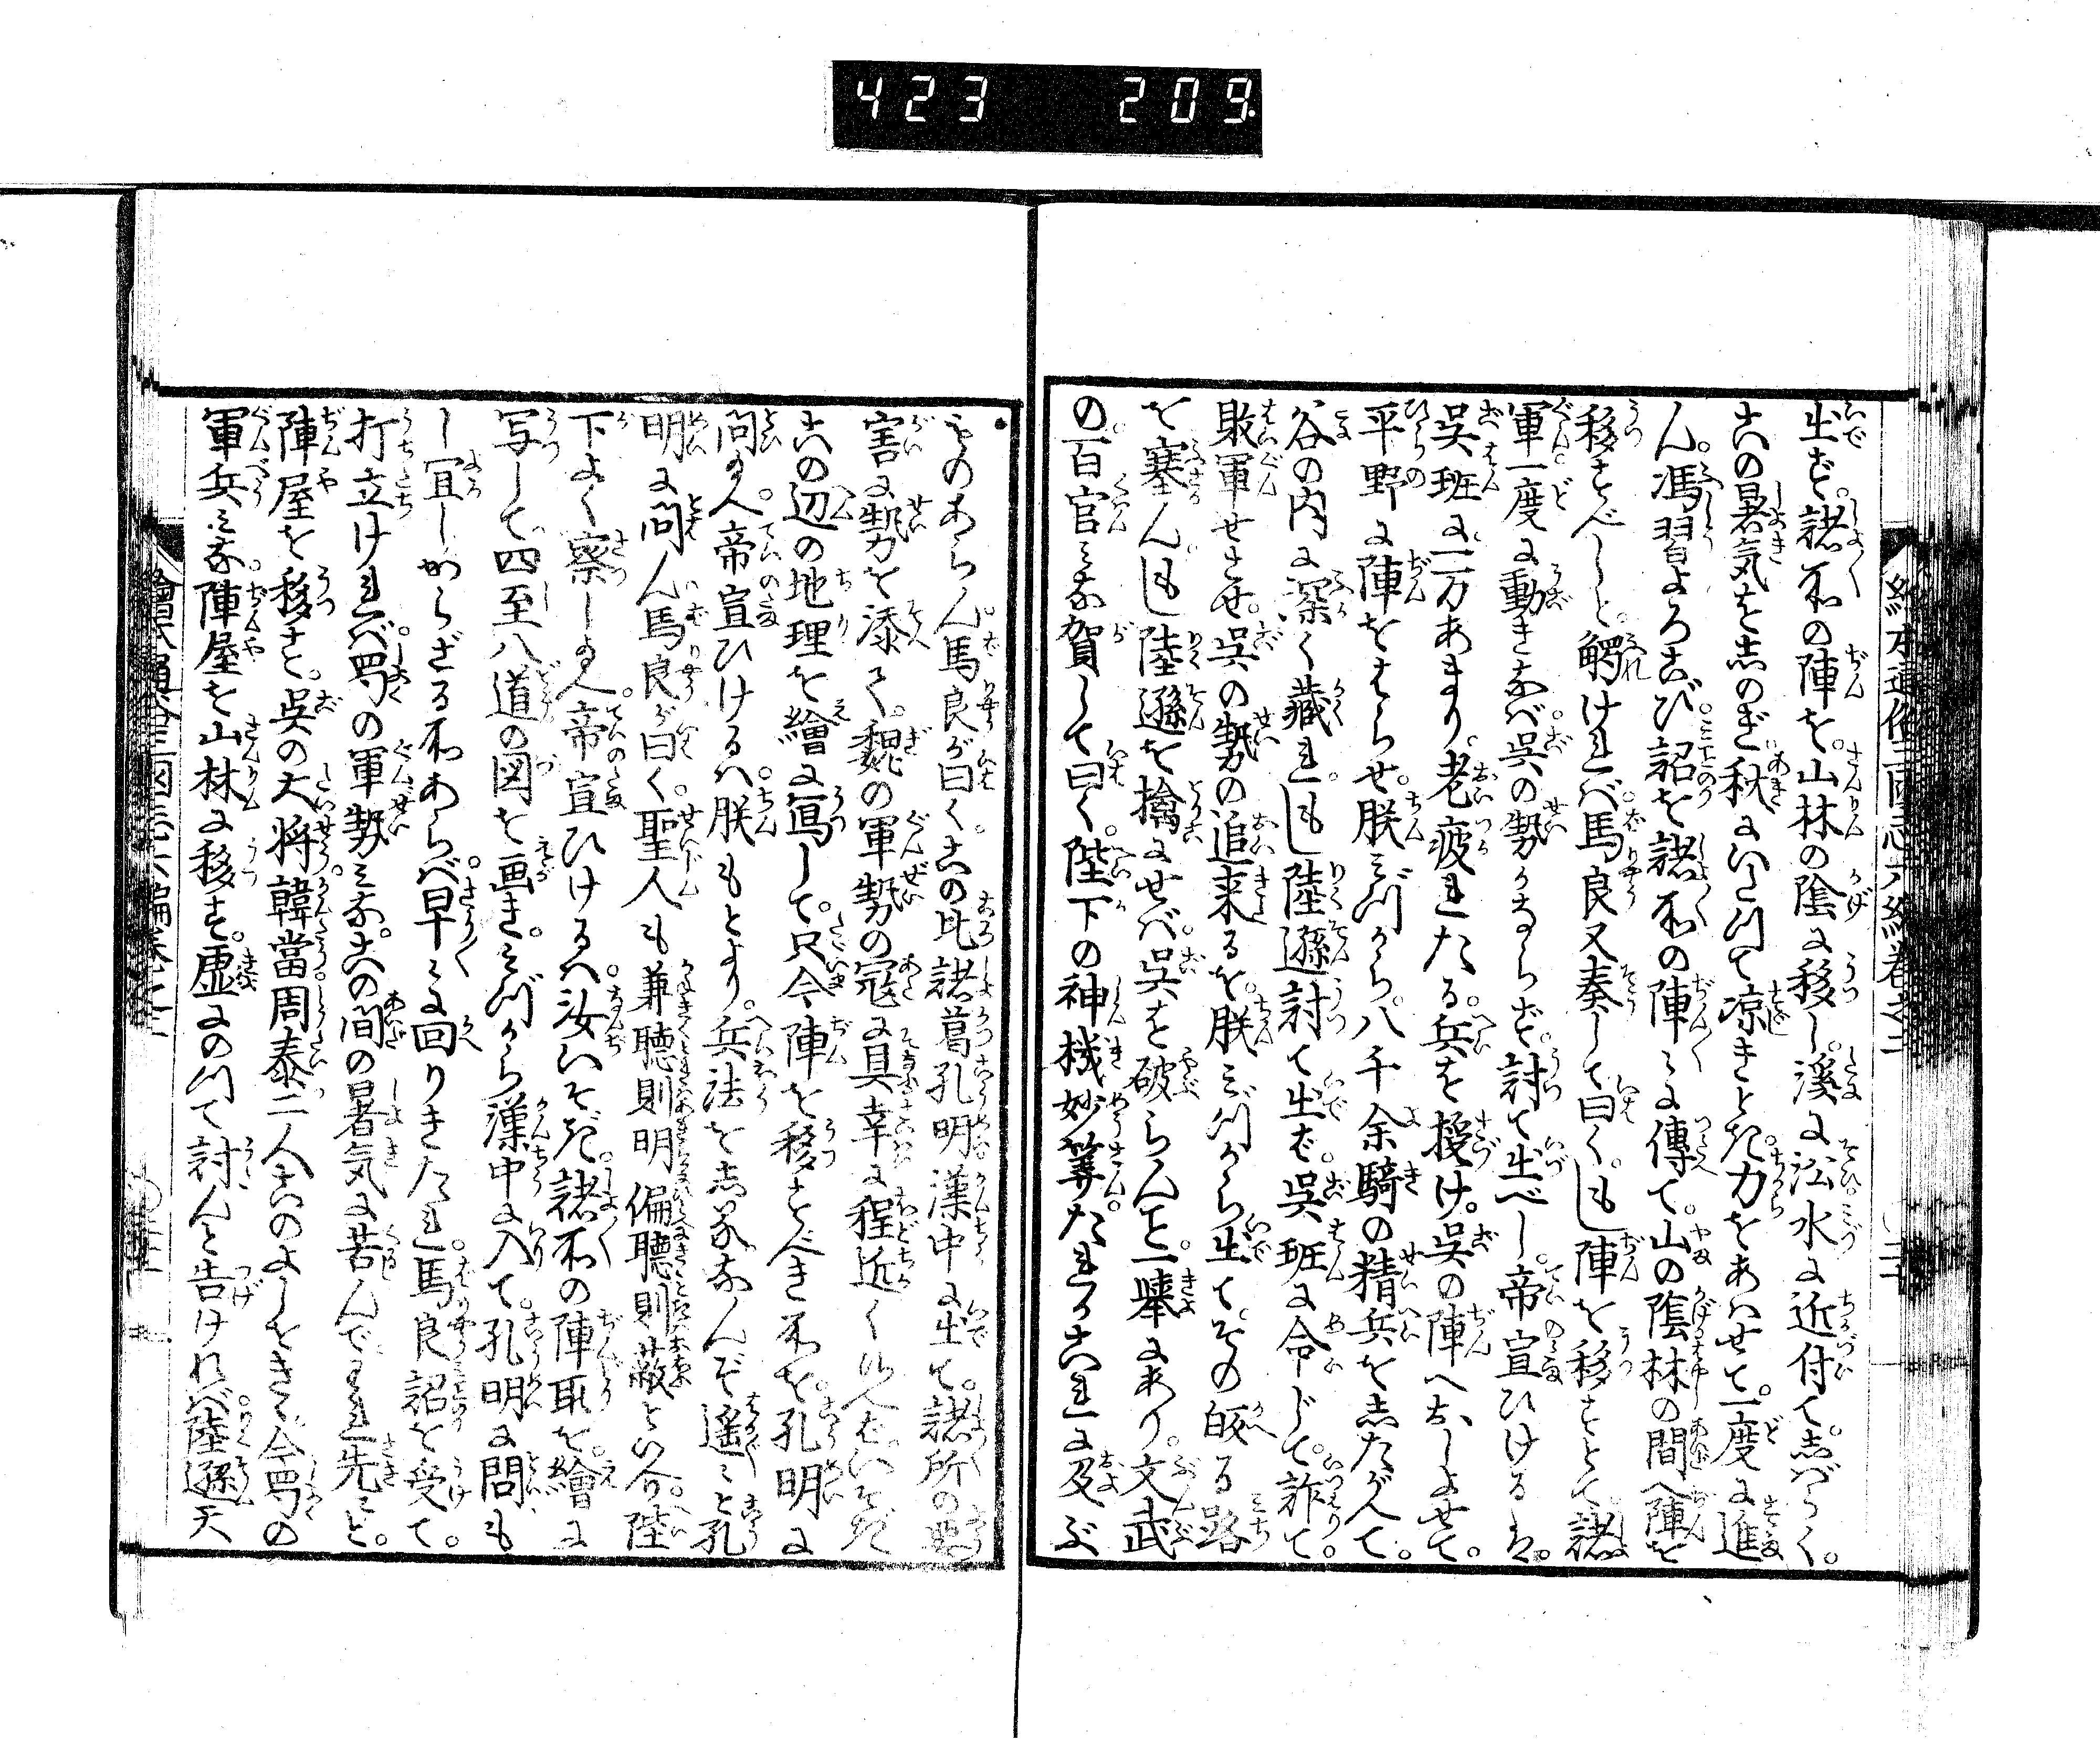 423 209
出ず。諸所の陣を。山林の陰に移し。溪に沿水に近付て。しばらく。
此の暑気を志のぎ秋にいたつて凉きとき。力をあハせて。一度に進
ん。馮習よろこび。詔を諸所の陣々に傳て。山の陰林の間へ陣を
移すべしと。觸けれバ。馬良又奏して曰く。もし陣を移すとて諸
軍一度に動きなバ。呉の勢かならず。討て出べし。帝宣ひけるは。
呉班に一万あまり。老疲れたる。兵を授け。呉の陣へおしよせて。
平野に陣をはらせ。朕みづから。八千余騎の精兵を志たがへて。
谷の内に深く藏れ。もし陸遜討て出ば。呉班に命じて。詐て。
敗軍せさせ。呉の勢の追来るを。朕みづから出て。その皈る路
を塞ん。もし陸遜を擒にせバ。呉を破らんこと。一擧にあり。文武
の百官みな賀して曰く。陛下の神機妙筭。たれか此れに及ぶ
ものあらん。馬良が曰く。此の比諸葛孔明漢中に出て。諸所の要
害に勢を添て。魏の軍勢の寇に具。幸に程近く候へば。いそぎ
此の辺の地理を繪に寫して。只今陣を移すべき所を。孔明に
問たまへ。帝宣ひけるハ。朕もとより。兵法を志れり。なんぞ遙々と孔
明に問ん。馬良が曰く。聖人も兼聴則明偏聴則蔽といへり。陛
下よく察したまへ。帝宣ひけるハ。汝いそぎ。諸所の陣取を。繪に
写して。四至八道の図を画き。みづから漢中に入て。孔明に問も
し宜しからざる所あらバ。早々に回りきたれ。馬良詔を受て。
打立けれバ。蜀の軍勢みな。此の間の暑気に苦んで。われ先にと。
陣屋を移す。呉の大将韓當。周泰二人此のよしをきゝ。今蜀の
軍兵みな。陣屋を山林に移す。虚にのつて討んと告けれバ。陸遜天
繪本通俗三國志六編卷之三